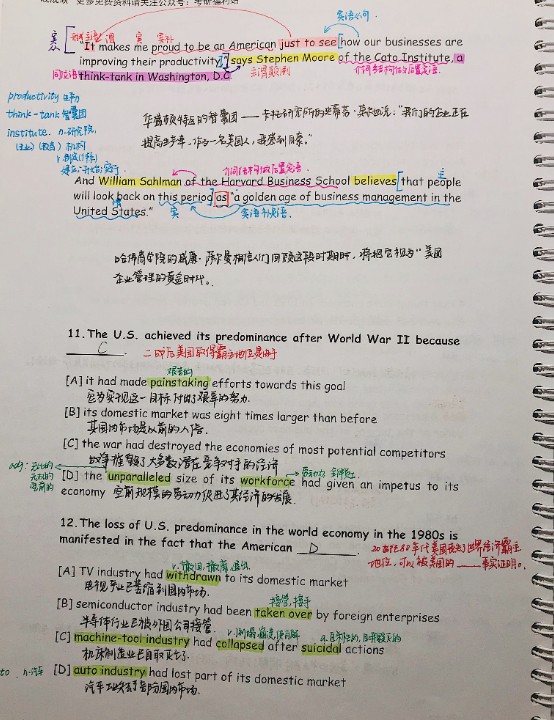 更多免费资料请关注公众号：考研福利站
宾语从句
"It makes me proud to be an American just to see how our businesses are
improving their productivity," says Stephen Moore of the Cato Institute, a
同位语 think-tank in Washington, D.C.
productivity 生产力
think-tank 智囊团
institute. n.研究院,
华盛顿特区的智囊团——卡托研究所的史蒂芬·莫尔说："我们的企业正在
提高生产率，作为一名美国人，我感到自豪。"
介词结构做后置定语.
And William Sahlman of the Harvard Business School believes that people
will look back on this period as "a golden age of business management in the
United States."
宾 宾语补足语.
哈佛商学院的威廉·萨尔曼相信人们回顾这段时期时，将把它视为"美国
企业管理的黄金时代。
11. The U.S. achieved its predominance after World War II because
C 二战后美国的霸主地位是由于
艰苦的
[A] it had made painstaking efforts towards this goal
它为实现这一目标付出了艰辛的努力.
[B] its domestic market was eight times larger than before
其国内市场是以前的八倍.
[C] the war had destroyed the economies of most potential competitors
战争摧毁了大多数潜在竞争对手的经济
[D] the unparalleled size of its workforce had given an impetus to its
economy 空前规模的劳动力促进了其经济的发展.
12. The loss of U.S. predominance in the world economy in the 1980s is
manifested in the fact that the American D
[A] TV industry had withdrawn to its domestic market
电视产业已撤缩到国内市场.
接管,接手
[B] semiconductor industry had been taken over by foreign enterprises
半导体行业已被外国公司接管.
[C] machine-tool industry had collapsed after suicidal actions
机床制造业已自取灭亡.
to n.汽车 [D] auto industry had lost part of its domestic market
汽车工业失去了部分国内市场.